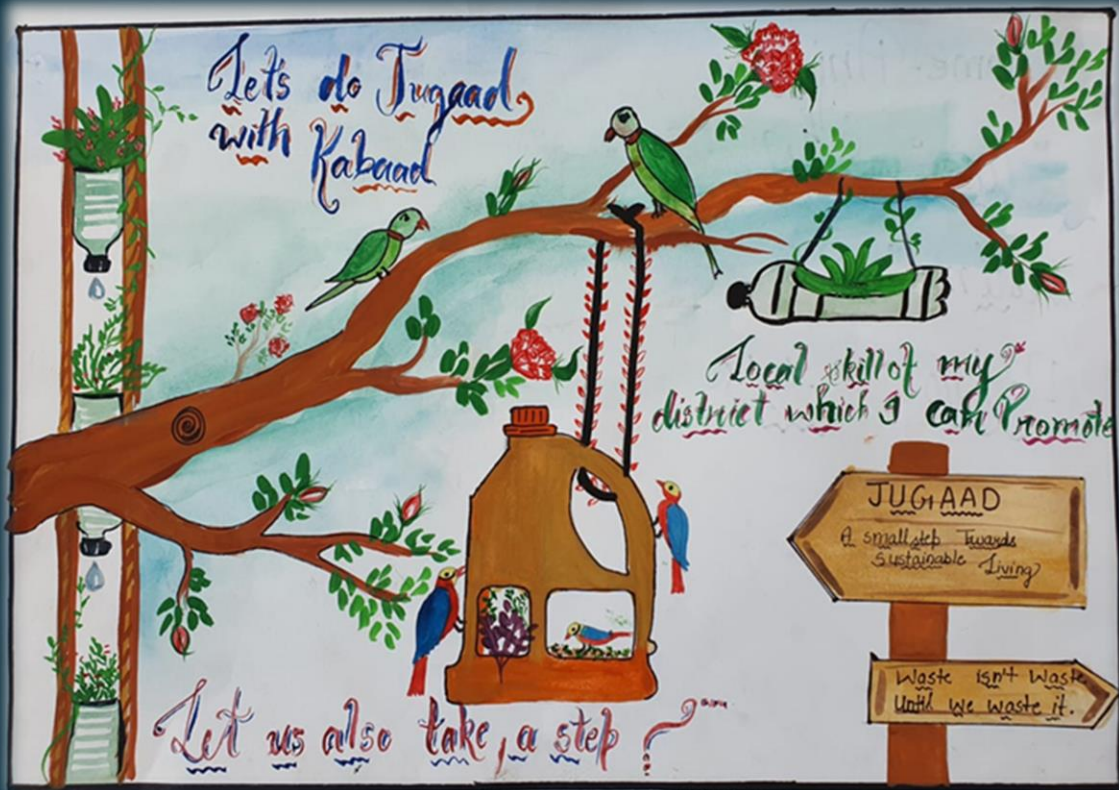 Let's do Jugaad
with Kabaad
Local skill of my
district which I can Promote
JUGAAD
A small step Towards
Sustainable Living
Waste isn't Waste
Until we waste it.
Let us also take, a step ?